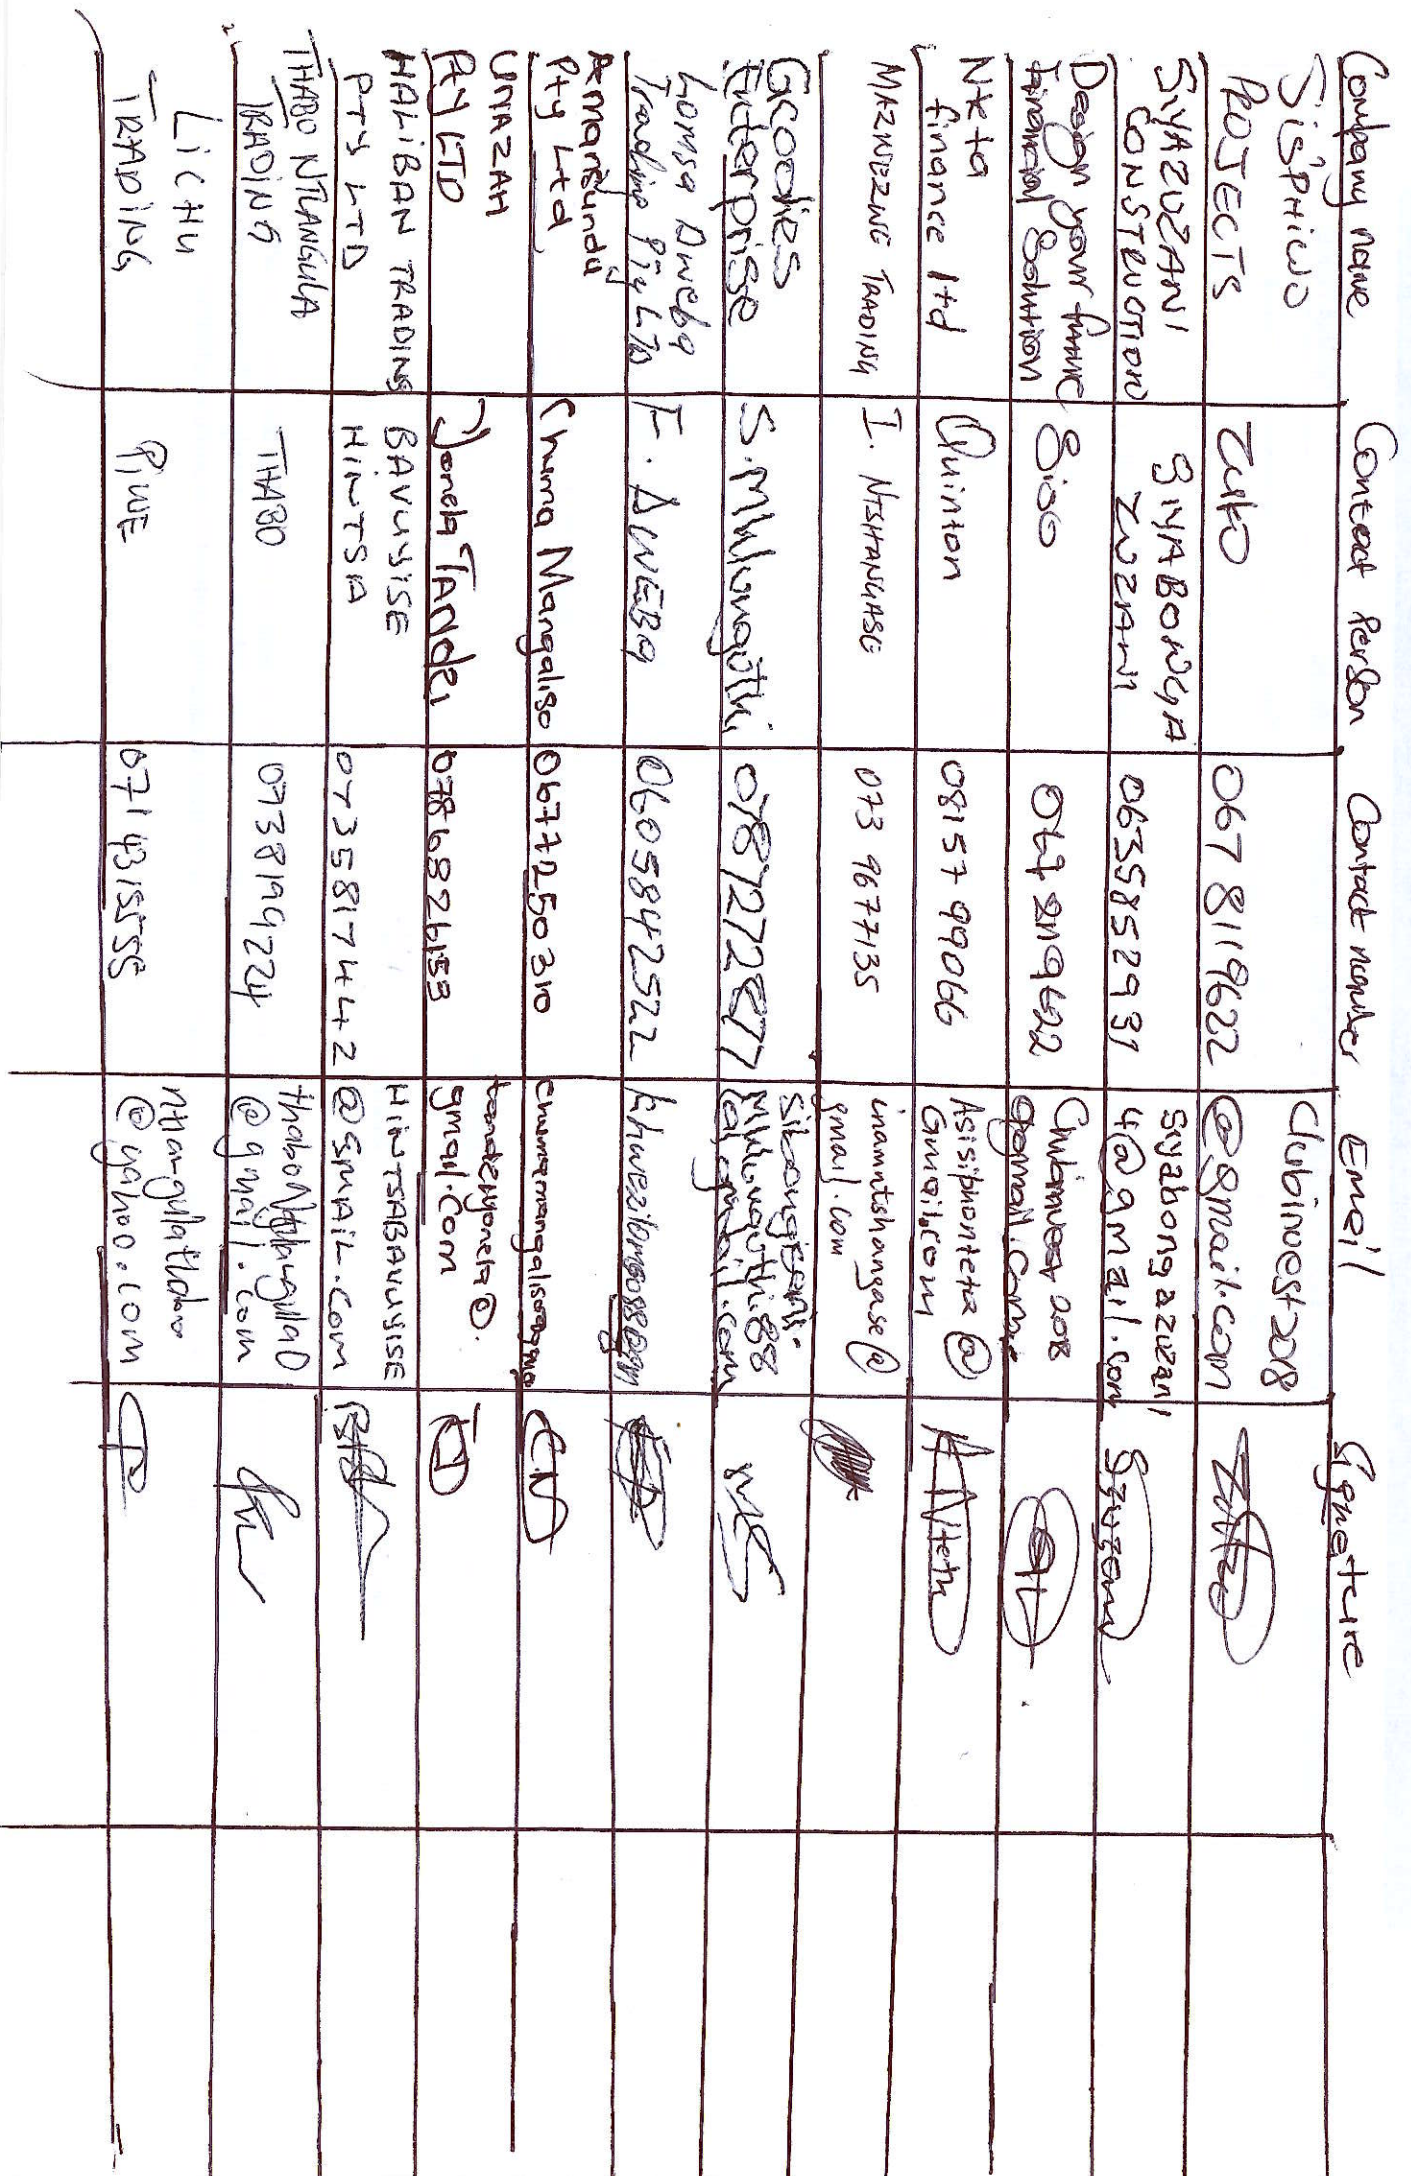 Company name Contact Person Contact number Email Signature
SiSPHIWO
PROJECTS ZUKO 067 8119622 Clubinvest2018
@gmail.com
SIYAZUZANI
CONSTRUCTION SIYABONGA
ZUZANI 0635852931 Siyabongazuzani
4@gmail.com
Design your future
Financial Solution Sioo Clubinvest 2018
@gmail.com
Nteta
finance ltd Quinton 08157 99066 Asisiphonteta @
Gmail.com
MAZWEZWE TRADING I. NTSHANGASE 073 9677135 inamntshangase@
gmail.com
Gcodies
Enterprise S. Mhlungothi 0787272877 Sibongiseni.
Mhlungothi.88
@gmail.com
Lomsa Dweba
Trading Pty LTD F. DWEBA 0605842522
Amampundu
Pty Ltd Chuma Mangaliso 0677250310
UMAZAH
Pty LTD Yonela TANdei 0786826153 tandeyonela@
gmail.com
HALIBAN TRADING
PTY LTD BAVUYISE
HINTSA 0735817442 HINTSABAVUYISE
@GMAIL.COM
THABO NTLANGULA
TRADING THABO 0738194224
@gmail.com
LiCHU
TRADING PIWE 0714315555
@yahoo.com